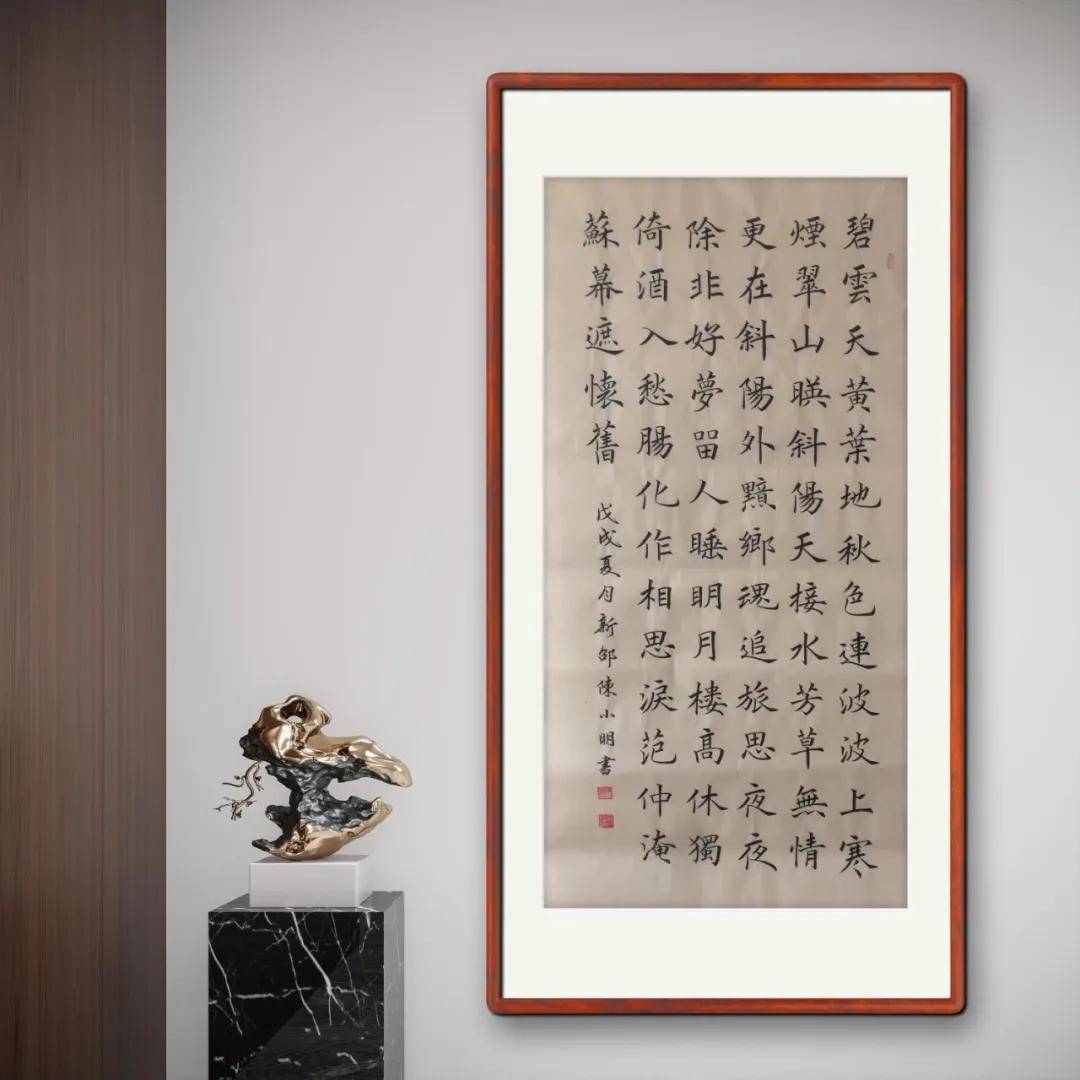 碧雲天黄葉地秋色連波波上寒
煙翠山暎斜陽天接水芳草無情
更在斜陽外黯鄉魂追旅思夜夜
除非好夢留人睡明月楼髙休獨
倚酒入愁腸化作相思淚范仲淹
蘇幕遮懷舊 戊戌夏月新邵陳小明書